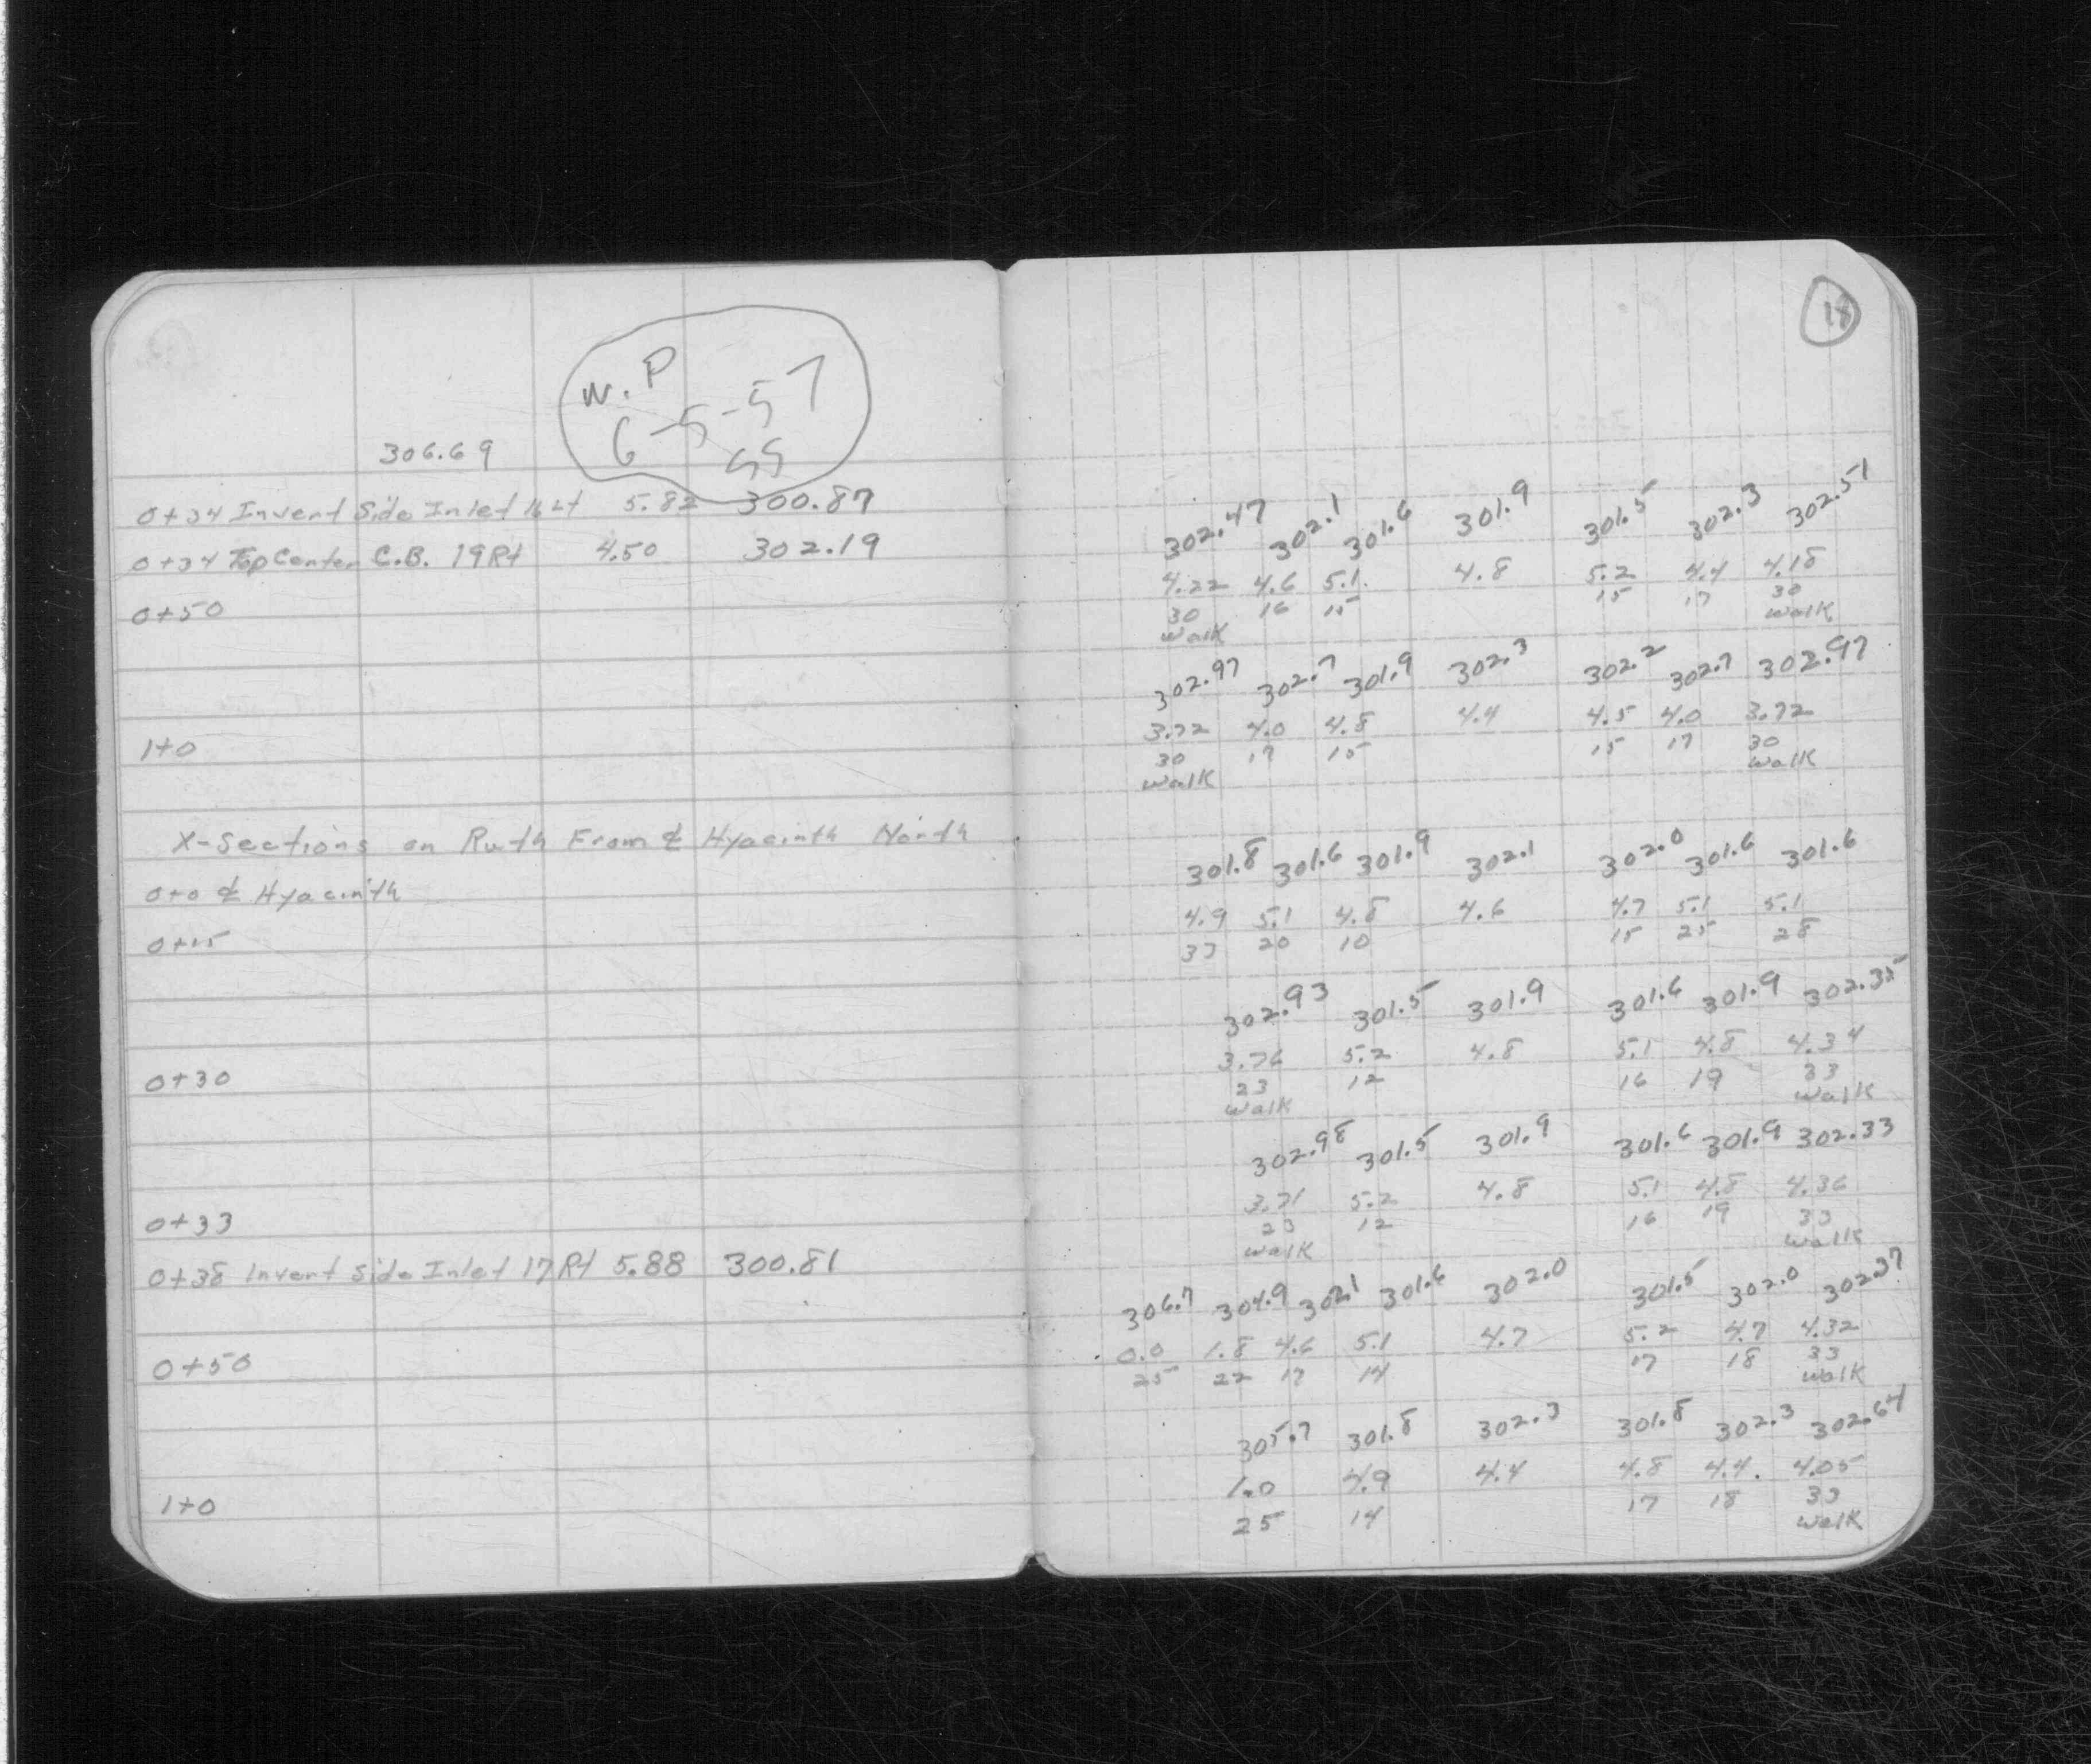 W.P
6-5-57
SS
306.69
0+34 Invert Side Inlet 16 Lt 5.82 300.87
0+34 Top Center C.B. 19 Rt 4.50 302.19
0+50
1+0
X-Sections on Ruth From ℄ Hyacinth North
0+0 ℄ Hyacinth
0+15
0+30
0+33
0+38 Invert Side Inlet 17 Rt 5.88 300.81
0+50
1+0
18
302.47 302.1 301.6 301.9 301.5 302.3 302.51
4.22 4.6 5.1 4.8 5.2 4.4 4.18
30 16 15 15 17 30
walk walk
302.97 302.7 301.9 302.3 302.2 302.7 302.97
3.72 4.0 4.8 4.4 4.5 4.0 3.72
30 17 15 15 17 30
walk walk
301.8 301.6 301.9 302.1 302.0 301.6 301.6
4.9 5.1 4.8 4.6 4.7 5.1 5.1
33 20 10 15 25 28
302.93 301.5 301.9 301.6 301.9 302.35
3.76 5.2 4.8 5.1 4.8 4.34
23 12 16 19 33
walk walk
302.98 301.5 301.9 301.6 301.9 302.33
3.71 5.2 4.8 5.1 4.8 4.36
23 12 16 19 33
walk walk
306.7 304.9 302.1 301.6 302.0 301.5 302.0 302.37
0.0 1.8 4.6 5.1 4.7 5.2 4.7 4.32
25 22 17 14 17 18 33
walk
305.7 301.8 302.3 301.8 302.3 302.64
1.0 4.9 4.4 4.8 4.4 4.05
25 14 17 18 33
walk